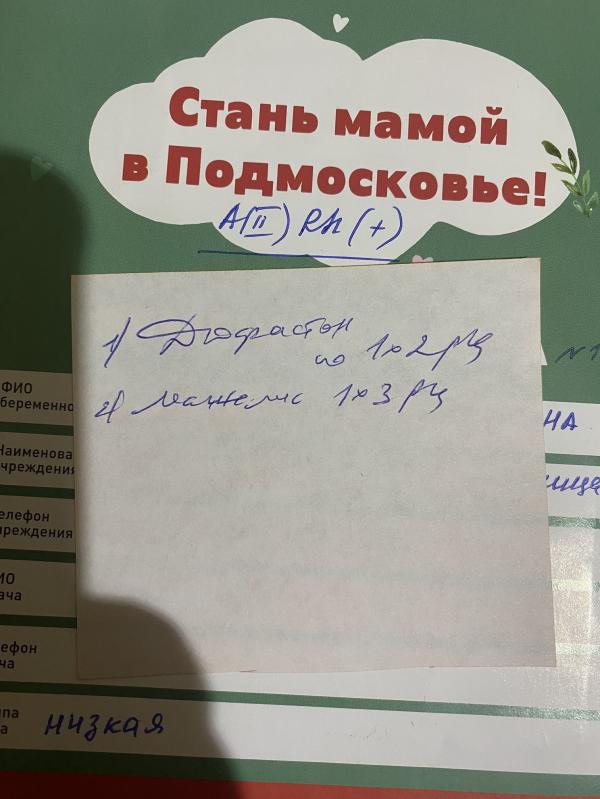 Стань мамой
в Подмосковье!
A(II) Rh (+)
1) Дюфастон
по 1х2 р/д
N1
2) Магнелис 1х3 р/д
ФИО
беременно
НА
Наименова
чреждения
ица
елефон
чреждения
ИО
ача
ефон
ча
па
а
низкая